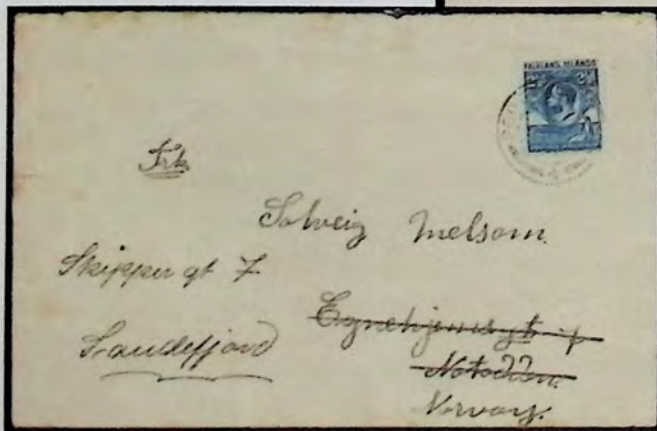 FALKLAND ISLANDS
Frk
Solveig Melsom.
Skipper gt 7
Sandefjord
Egnehjemsgt
Notodden
Norway.